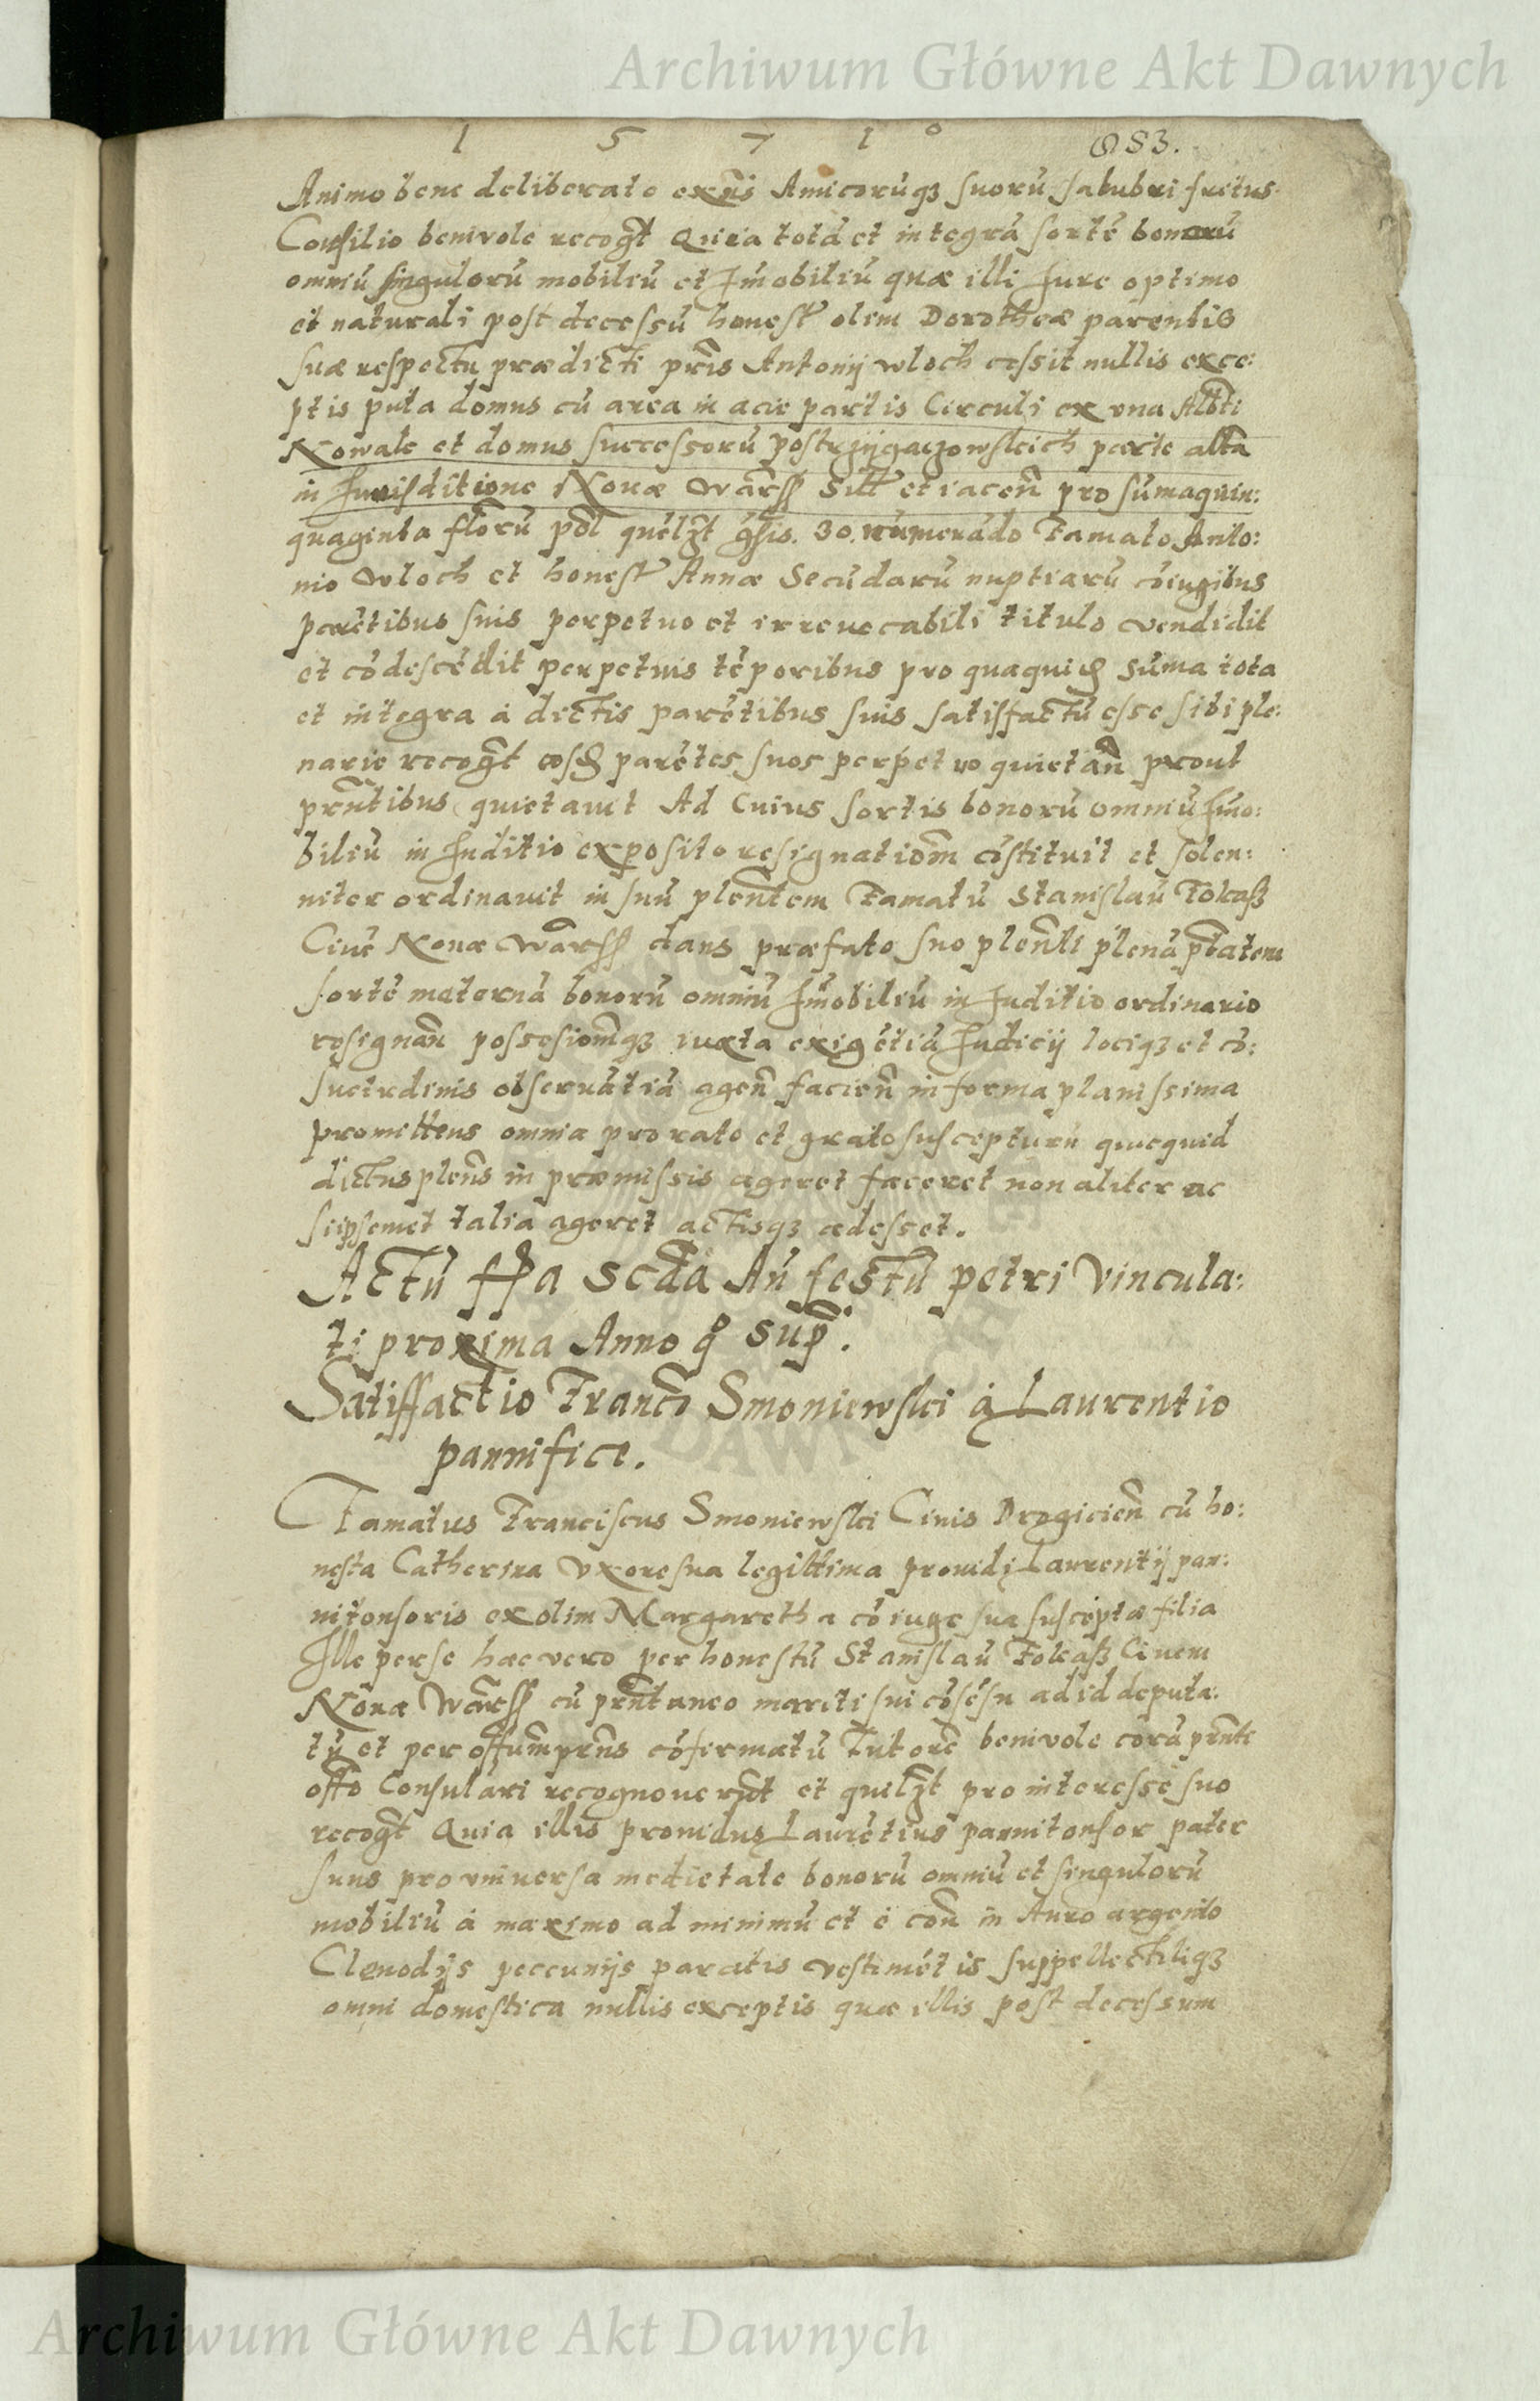 Archiwum Główne Akt Dawnych
1 5 7 1º 283.
Animo bene deliberato exñs Amicorūqꝫ suorū salubri fretus
Consilio benivole recogt̄ Quia totā et integrā sortē bonorū
omniū singulorū mobiliū et Im̄obiliū quæ illi Iure optimo
et naturali post decessū honestꝰ olim Dorotheæ parentis
suæ respectu prædicti pr̄is Antonij wloch cessit nullis exce:
ptis puta domus cū area in acie partis Circuli ex una Alb̄ti
Nowak et domus successorū postrzygaczowskich parte alt̄a
in Iurisditione Nouæ Warss̄ sitt̄ et iacen̄ pro sūma quin:
quaginta flōrū pol̄ quēlꝫt gr̄sis. 30. numerādo Famato Anto:
nio Wloch et honestꝰ Annæ Secūdarū nuptiarū cōiugibus
parētibus suis perpetuo et irreuocabili titulo vendidit
et cōdescēdit perpetuis tēporibus pro qua quid̄ sūma tota
et integra à dictis parētibus suis satisfactū esse sibi ple:
narie recogt̄ eosd̄ parētes suos perpetuo quietan̄ prout
prn̄tibus quietauit Ad Cuius sortis bonorū omniū Im̄o:
biliū in Iuditio exposito resignatiōm cōstituit et solen:
niter ordinauit in suū plen̄tem Famatū Stanislaū Folkaß
Ciuē Nouæ Warss̄ dans præfato suo plen̄ti plenā pt̄atem
sortē maternā bonorū omniū Im̄obiliū in Iuditio ordinario
resignan̄ possesiom̄qꝫ iuxta exigētiā Iudicij lociqꝫ et cō:
suetudinis obseruātiā agen̄ facien̄ in forma planissima
promittens omnia pro rato et grato suscepturū quicquid
dictus plen̄s in præmissis ageret faceret non aliter ac
siipsemet talia ageret actisqꝫ adesset.
Actū ff̄a scd̄a An̄ festū petri Vincula:
ti proxima Anno qº sup̄.
Satisfactio Franc̄ Smoniewski à Laurentio
pannifice.
Famatus Franciscus Smoniewski Ciuis Drogicien̄ cū ho:
nesta Catherina Vxore sua legittima prouidi Laurentij pan:
nitonsoris ex olim Margaretha cōiuge sua suscepta filia
Ille per se hæc vero per honestū Stanislaū Folkaß Ciuem
Nouæ Warss̄ cū prn̄taneo mariti sui cōsēsu ad id deputa:
tū et per offum̄ prn̄s cōfirmatū Tutorē benivole corā prn̄te
offo Consulari recognouerūt et quilꝫt pro interesse suo
recogt̄ Quia illis prouidus Laurētius pannitonsor pater
suus pro vniuersa medietate bonorū omniū et singulorū
mobiliū à maximo ad minimū et è con̄ in Auro argento
Clenodijs peccunijs paratis vestimētis suppellectiliqꝫ
omni domestica nullis exceptis quæ illis post decessum
Archiwum Główne Akt Dawnych